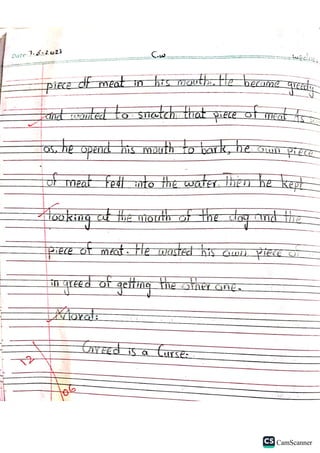 Date 7.6.2023 C.W
piece of meat in his mouth. He became greedy
and wanted to snatch that piece of meat As s
as, he opend his mouth to bark, he own piece
of meat fell into the water. Then he kept
looking at the mouth of the dog and the
piece of meat. He wasted his own piece of
in greed of getting the other one.
Moral:
GREED is a Curse.
12
06
CS CamScanner